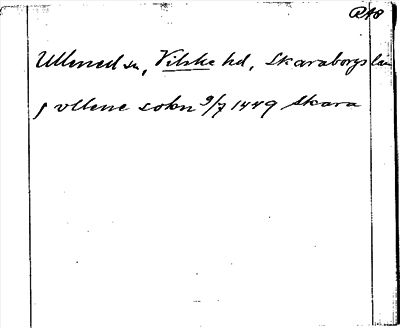 RA8
Ullened sn, Vilske hd, Skaraborgs län
j vllene sokn 9/7 1449 Skara